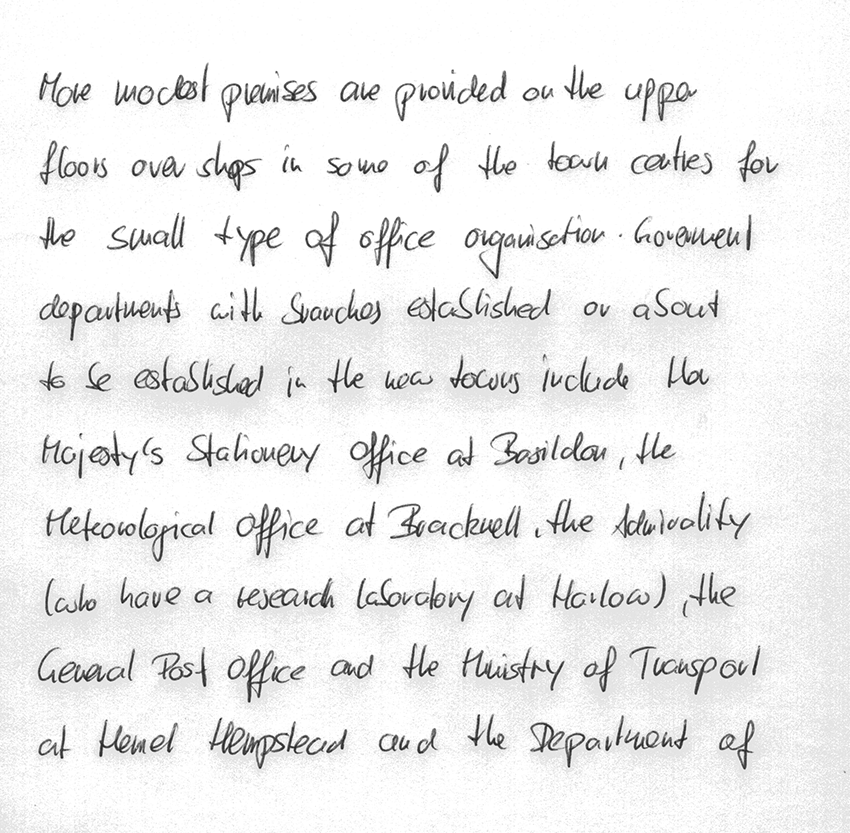 More modest premises are provided on the upper
floors over shops in some of the town centres for
the small type of office organisation. Government
departments with branches established or about
to be established in the new towns include Her
Majesty's Stationery Office at Basildon, the
Meteorological Office at Bracknell, the Admirality
(who have a research laboratory at Harlow), the
General Post Office and the Ministry of Transport
at Hemel Hempstead and the Department of